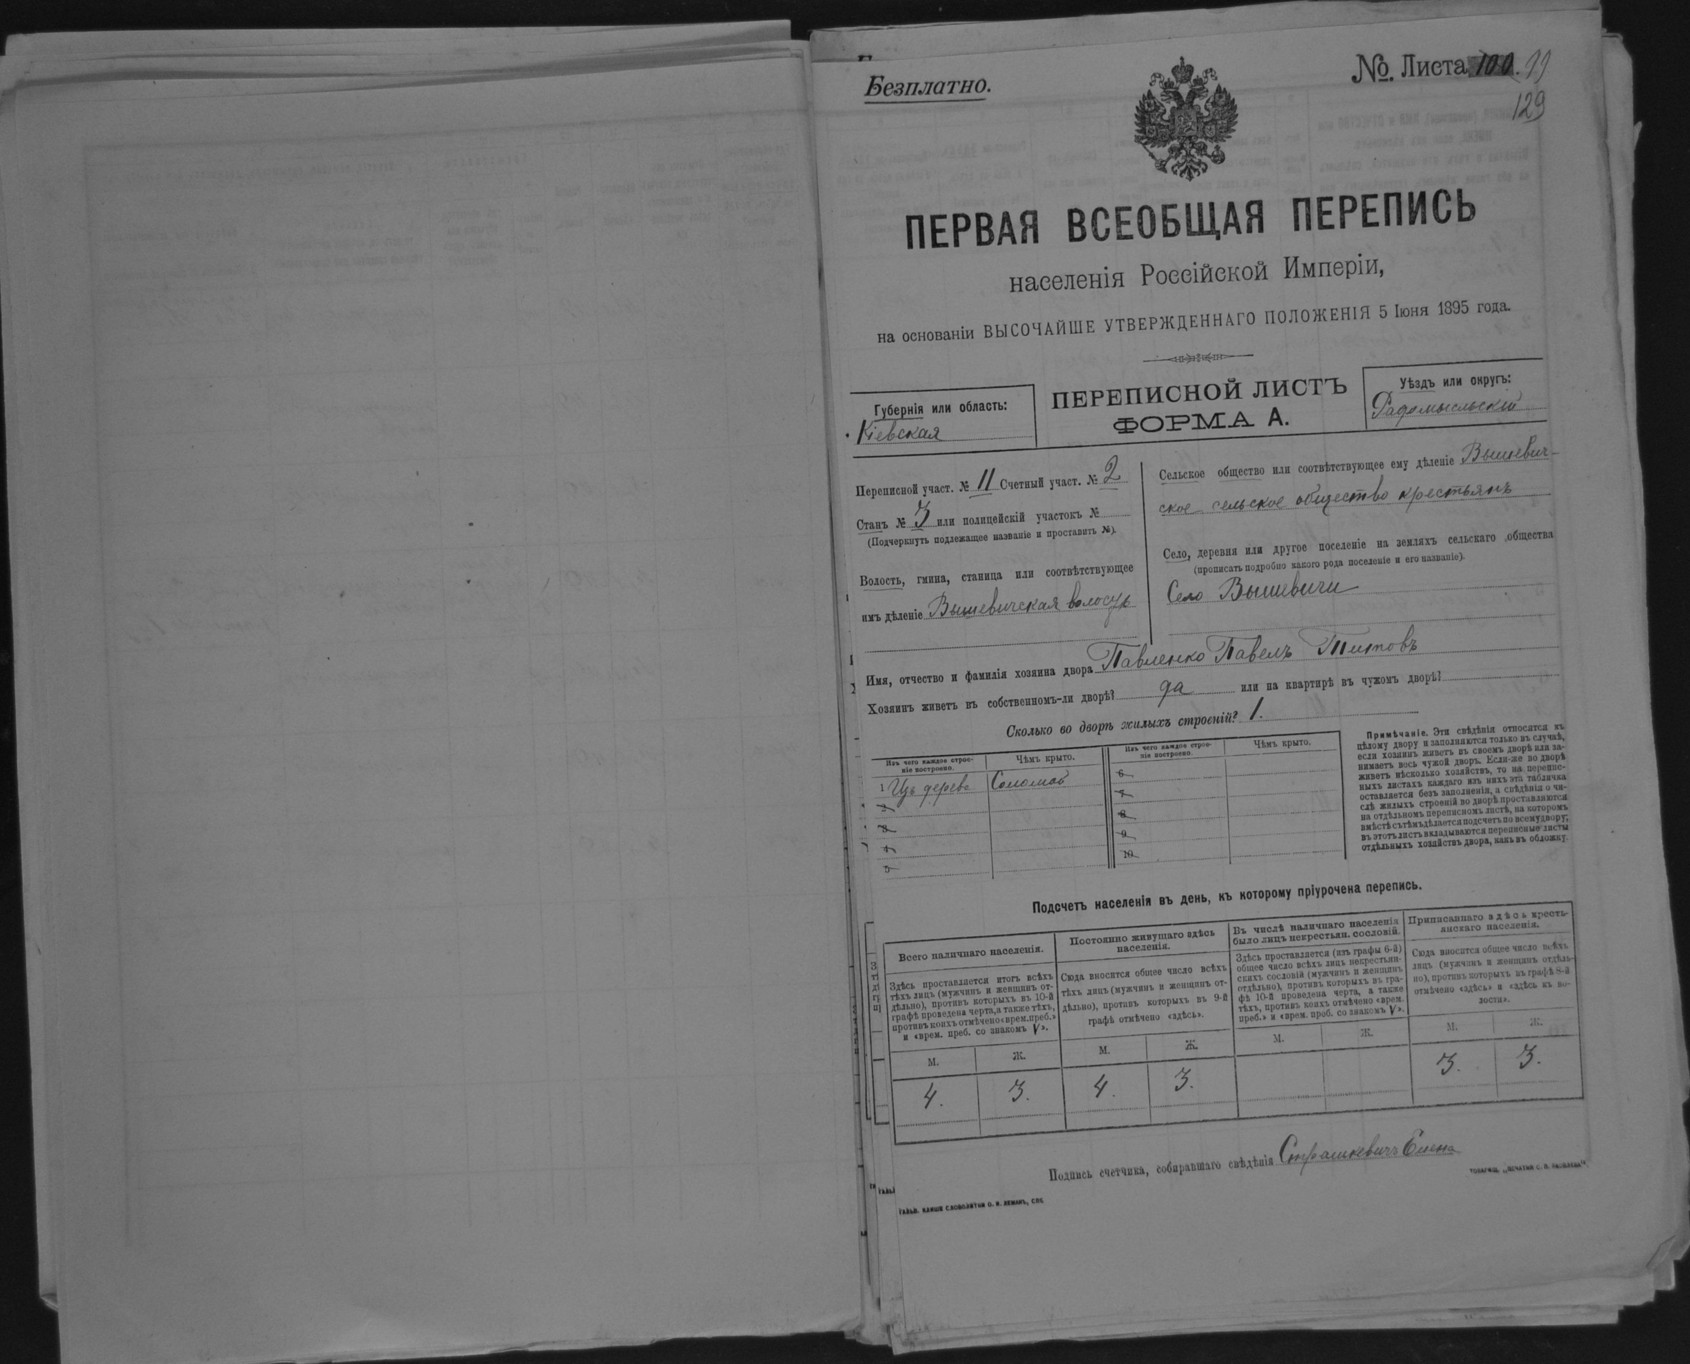 Безплатно.
№. Листа 100. 99
129
ПЕРВАЯ ВСЕОБЩАЯ ПЕРЕПИСЬ
населенія Россійской Имперіи,
на основаніи ВЫСОЧАЙШЕ УТВЕРЖДЕННАГО ПОЛОЖЕНІЯ 5 Іюня 1895 года.
Губернія или область:
Кіевская
ПЕРЕПИСНОЙ ЛИСТЪ
ФОРМА А.
Уѣздъ или округъ:
Радомысльскій
Переписной участ. № 11 Счетный участ. № 2
Станъ № 3 или полицейскій участокъ №
(Подчеркнуть подлежащее названіе и проставить №).
Волость, гмина, станица или соотвѣтствующее
имъ дѣленіе Вышевичская волость
Сельское общество или соотвѣтствующее ему дѣленіе Вышевич-
ское сельское общество крестьянъ
Село, деревня или другое поселеніе на земляхъ сельскаго общества
(прописать подробно какого рода поселеніе и его названіе).
Село Вышевичи
Имя, отчество и фамилія хозяина двора Павленко Павелъ Титовъ
Хозяинъ живетъ въ собственномъ-ли дворѣ? да или на квартирѣ въ чужомъ дворѣ?
Сколько во дворѣ жилыхъ строеній? 1.
Изъ чего каждое строе-
ніе построено.
Чѣмъ крыто.
Изъ чего каждое строе-
ніе построено.
Чѣмъ крыто.
1 Изъ дерева Соломой
2
3
4
5
6
7
8
9
10
Примѣчаніе. Эти свѣдѣнія относятся къ
цѣлому двору и заполняются только въ случаѣ,
если хозяинъ живетъ въ своемъ дворѣ или за-
нимаетъ весь чужой дворъ. Если-же во дворѣ
живетъ нѣсколько хозяйствъ, то на перепис-
ныхъ листахъ каждаго изъ нихъ эта табличка
оставляется безъ заполненія, а свѣдѣнія о чи-
слѣ жилыхъ строеній во дворѣ проставляются
на отдѣльномъ переписномъ листѣ, на которомъ
вмѣстѣ съ тѣмъ дѣлается подсчетъ по всему двору;
въ этотъ листъ вкладываются переписные листы
отдѣльныхъ хозяйствъ двора, какъ въ обложку.
Подсчетъ населенія въ день, къ которому пріурочена перепись.
Всего наличнаго населенія.
Здѣсь проставляется итогъ всѣхъ
тѣхъ лицъ (мужчинъ и женщинъ от-
дѣльно), противъ которыхъ въ 10-й
графѣ проведена черта, а также тѣхъ,
противъ коихъ отмѣчено «врем. преб.»
и «врем. преб. со знакомъ V».
М. Ж.
4. 3.
Постоянно живущаго здѣсь
населенія.
Сюда вносится общее число всѣхъ
тѣхъ лицъ (мужчинъ и женщинъ от-
дѣльно), противъ которыхъ въ 9-й
графѣ отмѣчено «здѣсь».
М. Ж.
4. 3.
Въ числѣ наличнаго населенія
было лицъ некрестьян. сословій.
Здѣсь проставляется (изъ графы 6-й)
общее число всѣхъ лицъ некрестьян-
скихъ сословій (мужчинъ и женщинъ
отдѣльно), противъ которыхъ въ гра-
фѣ 10-й проведена черта, а также
тѣхъ, противъ коихъ отмѣчено «врем.
преб.» и «врем. проб. со знакомъ V».
М. Ж.
Приписаннаго здѣсь кресть-
янскаго населенія.
Сюда вносится общее число всѣхъ
лицъ (мужчинъ и женщинъ отдѣль-
но), противъ которыхъ въ графѣ 8-й
отмѣчено «здѣсь» и «здѣсь въ во-
лости».
М. Ж.
3. 3.
Подпись счетчика, собиравшаго свѣдѣнія Страшкевичъ
ГАЛЬВ. КЛИШЕ СЛОВОЛИТНИ О. И. ЛЕМАНЪ, СПБ.
ТОВАРИЩ. „ПЕЧАТНЯ С. П. ЯКОВЛЕВА".